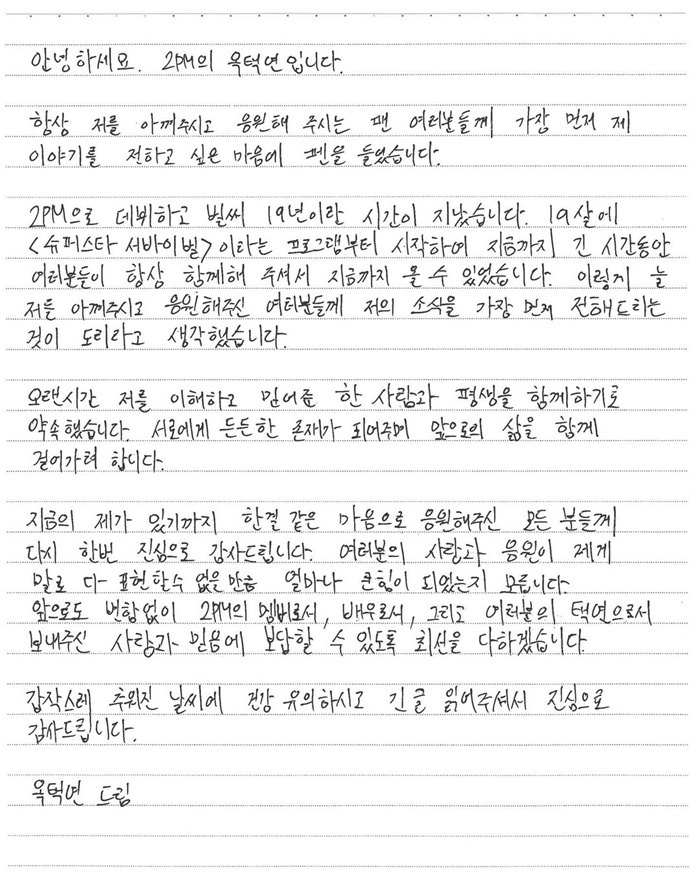 안녕하세요. 2PM의 옥택연입니다.
항상 저를 아껴주시고 응원해 주시는 팬 여러분들께 가장 먼저 제
이야기를 전하고 싶은 마음에 펜을 들었습니다.
2PM으로 데뷔하고 벌써 19년이란 시간이 지났습니다. 19살에
<슈퍼스타 서바이벌>이라는 프로그램부터 시작하여 지금까지 긴 시간동안
여러분들이 항상 함께해 주셔서 지금까지 올 수 있었습니다. 이렇게 늘
저를 아껴주시고 응원해주신 여러분들께 저의 소식을 가장 먼저 전해드리는
것이 도리라고 생각했습니다.
오랜시간 저를 이해하고 믿어준 한 사람과 평생을 함께하기로
약속했습니다. 서로에게 든든한 존재가 되어주며 앞으로의 삶을 함께
걸어가려 합니다.
지금의 제가 있기까지 한결 같은 마음으로 응원해주신 모든 분들께
다시 한번 진심으로 감사드립니다. 여러분의 사랑과 응원이 제게
말로 다 표현할수 없을만큼 얼마나 큰힘이 되었는지 모릅니다.
앞으로도 변함없이 2PM의 멤버로서, 배우로서, 그리고 여러분의 택연으로서
보내주신 사랑과 믿음에 보답할 수 있도록 최선을 다하겠습니다.
갑작스레 추워진 날씨에 건강 유의하시고 긴글 읽어주셔서 진심으로
감사드립니다.
옥택연 드림